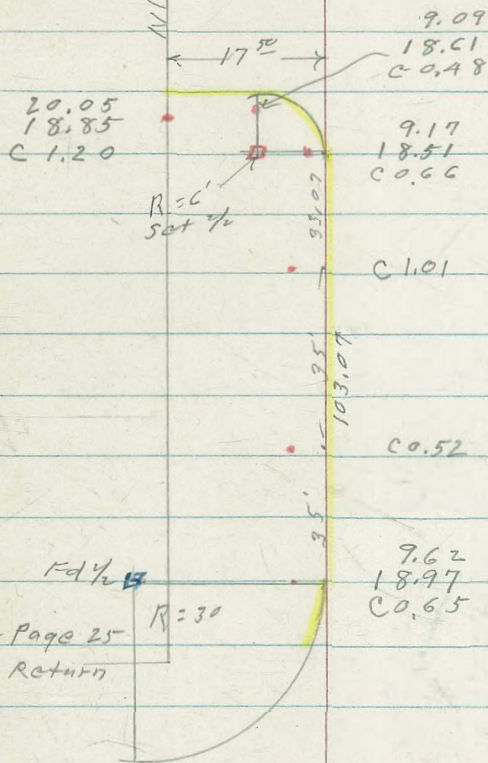 9.09
18.61
C 0.48
17 50
20.05
18.85
C 1.20
9.17
18.51
C 0.66
R = 6'
Set 1/2
33.07
C 1.01
35'
103.07
C 0.52
35'
9.62
18.97
C 0.65
Fd 1/2
R = 30
Page 25
Return